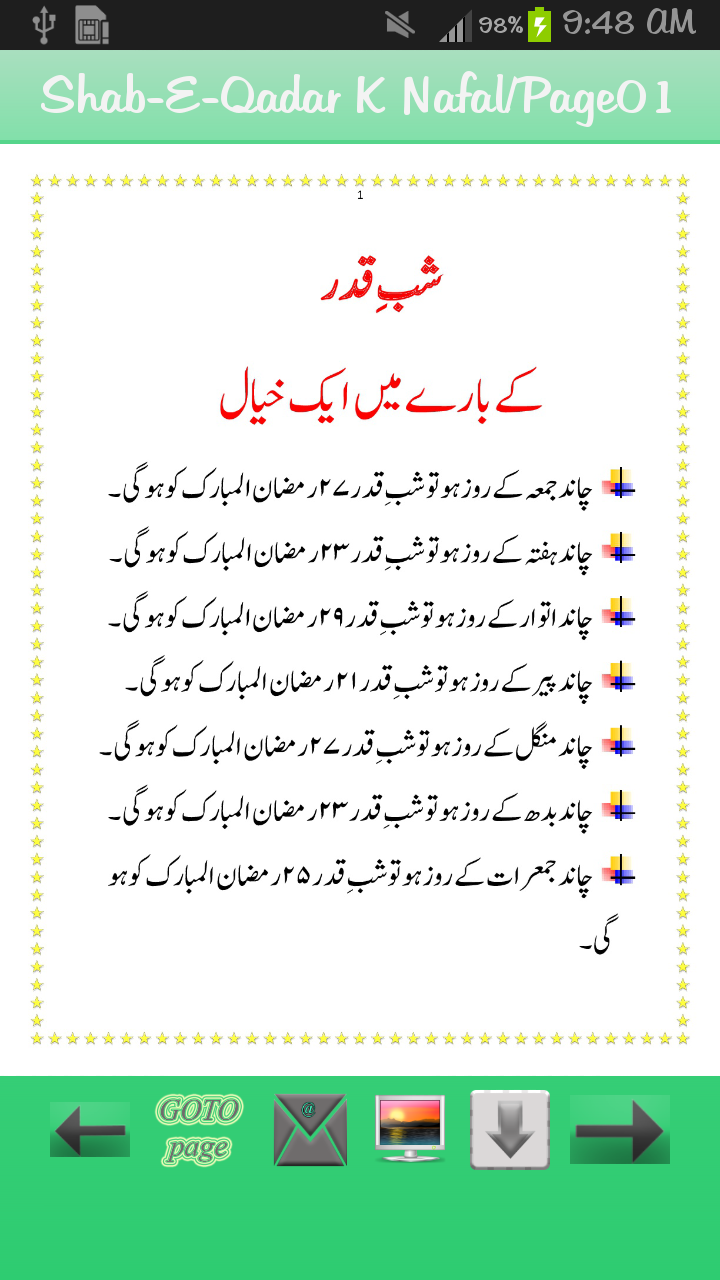 98% 9:48 AM
Shab-E-Qadar K Nafal/Page01
1
شبِ قدر
کے بارے میں ایک خیال
چاند جمعہ کے روز ہو تو شبِ قدر ۲۷ رمضان المبارک کو ہو گی۔
چاند ہفتہ کے روز ہو تو شبِ قدر ۲۳ رمضان المبارک کو ہو گی۔
چاند اتوار کے روز ہو تو شبِ قدر ۲۹ رمضان المبارک کو ہو گی۔
چاند پیر کے روز ہو تو شبِ قدر ۲۱ رمضان المبارک کو ہو گی۔
چاند منگل کے روز ہو تو شبِ قدر ۲۷ رمضان المبارک کو ہو گی۔
چاند بدھ کے روز ہو تو شبِ قدر ۲۳ رمضان المبارک کو ہو گی۔
چاند جمعرات کے روز ہو تو شبِ قدر ۲۵ رمضان المبارک کو ہو
گی۔
GOTO
page
@